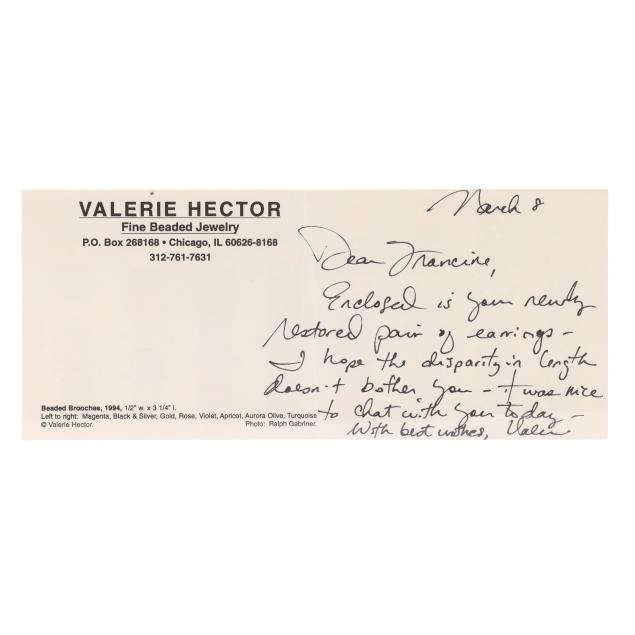 VALERIE HECTOR
Fine Beaded Jewelry
P.O. Box 268168 • Chicago, IL 60626-8168
312-761-7631
March 8
Dear Francine,
Enclosed is your newly
restored pair of earrings -
I hope the disparity in length
doesn't bother you - It was nice
to chat with you today -
With best wishes, Valerie
Beaded Brooches, 1994, 1/2" w. x 3 1/4" l.
Left to right: Magenta, Black & Silver, Gold, Rose, Violet, Apricot, Aurora Olive, Turquoise
© Valerie Hector. Photo: Ralph Gabriner.